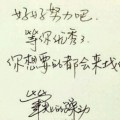 好好努力吧.
等你优秀了
你想要的都会来找